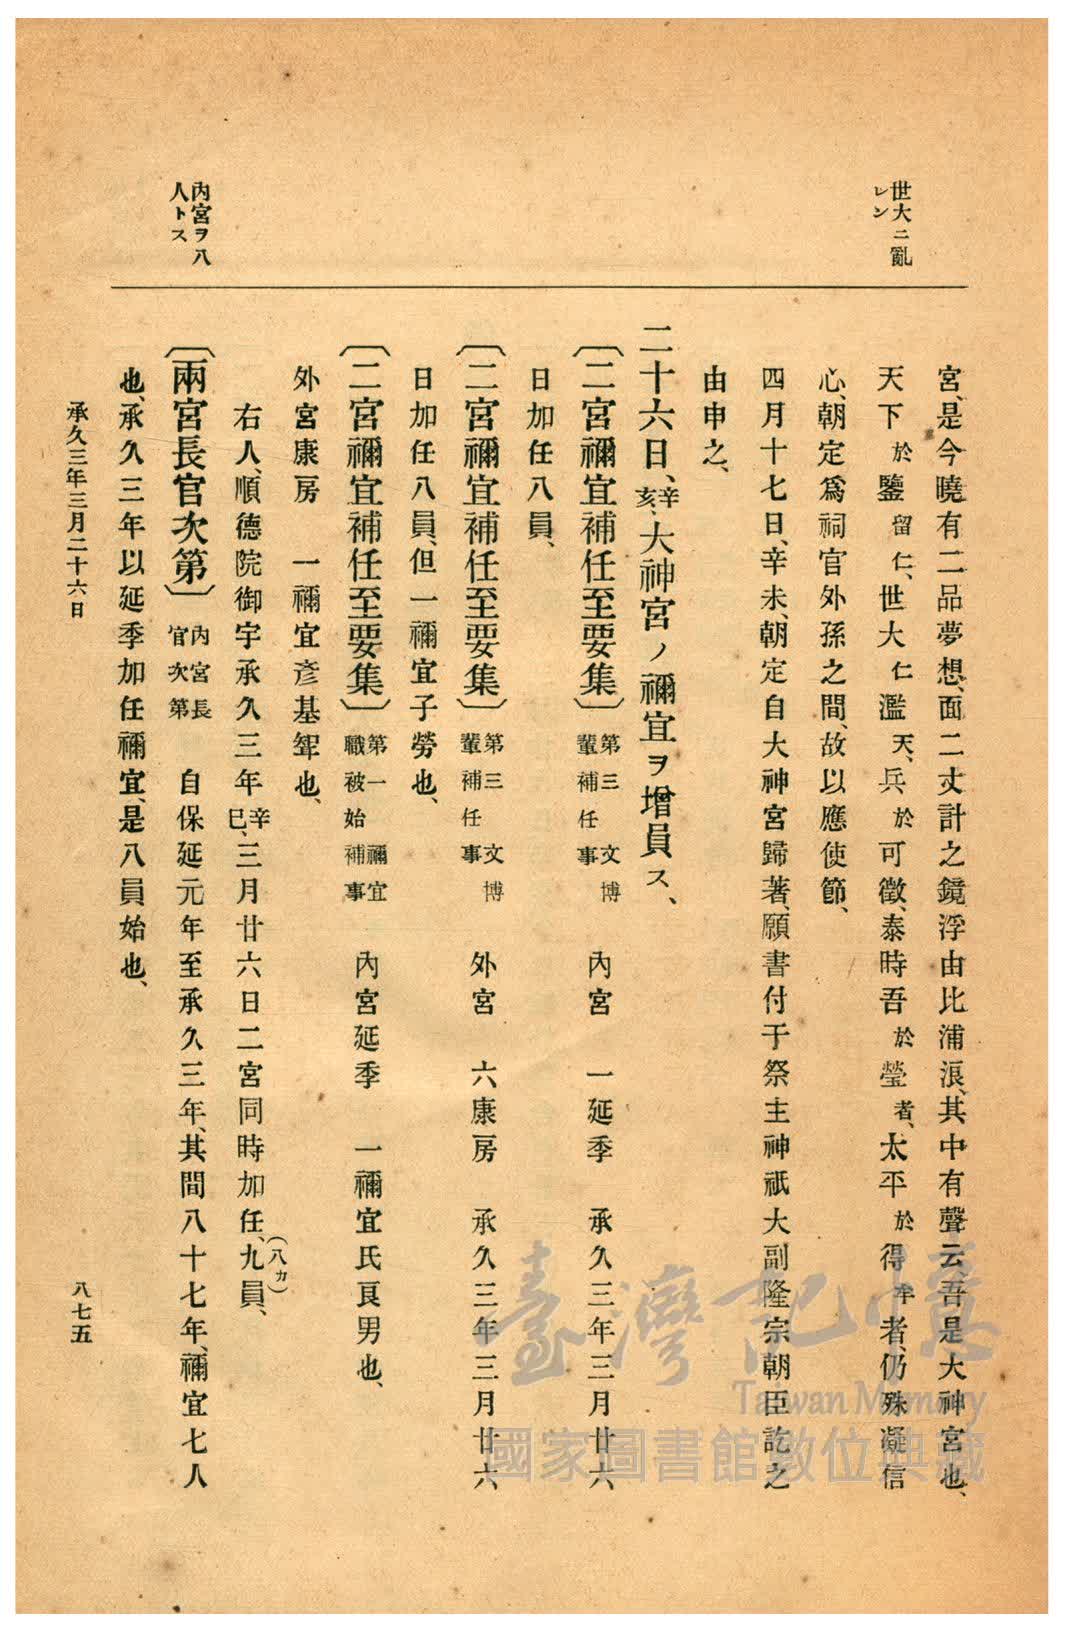 世大ニ亂
レン
宮、是今曉有二品夢想、面二丈計之鏡浮由比浦浪、其中有聲云、吾是大神宮也、
天下於鑒留仁、世大仁濫天、兵於可徵、泰時吾於瑩者、太平於得牟者、仍殊凝信
心、朝定爲祠官外孫之間、故以應使節、
四月十七日、辛未、朝定自大神宮歸著、願書付于祭主神祇大副隆宗朝臣訖之
由申之、
二十六日、辛亥、大神宮ノ禰宜ヲ增員ス、
〔二宮禰宜補任至要集〕第三 文博輩補任事 內宮 一延季 承久三年三月廿六
日加任八員、
〔二宮禰宜補任至要集〕第三 文博輩補任事 外宮 六康房 承久三年三月廿六
日加任八員、但一禰宜子勞也、
〔二宮禰宜補任至要集〕第一 禰宜職被始補事 內宮延季 一禰宜氏良男也、
外宮康房 一禰宜彥基聟也、
右人、順德院御宇承久三年辛巳、三月廿六日二宮同時加任、九員、(八カ)
內宮ヲ八
人トス
〔兩宮長官次第〕內宮長官次第 自保延元年至承久三年、其間八十七年、禰宜七人
也、承久三年以延季加任禰宜、是八員始也、
承久三年三月二十六日
八七五
臺灣記憶
Taiwan Memory
國家圖書館數位典藏